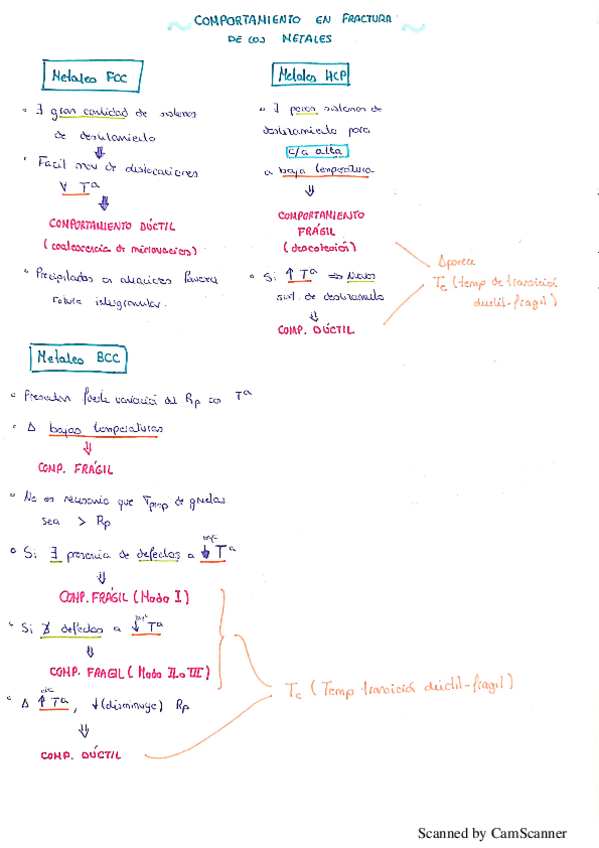 COMPORTAMIENTO EN FRACTURA
DE LOS METALES
Metales FCC
◦ ∃ gran cantidad de sistemas
de deslizamiento
⇓
◦ Fácil mov de dislocaciones
∀ Tª
⇓
COMPORTAMIENTO DÚCTIL
(coalescencia de microvacíos)
◦ Precipitados o aleaciones
rotura intergranular.
Metales HCP
◦ ∃ pocos sistemas de
deslizamiento para
c/a alta
a baja temperatura
⇓
COMPORTAMIENTO
FRÁGIL
(descohesión)
◦ Si ↑ Tª ⇒ Nuevos
sist. de deslizamiento
⇓
COMP. DÚCTIL
Aparece
Tc (temp de transición
dúctil-frágil)
Metales BCC
◦ Presentan fuerte variación del Rp con Tª
◦ A bajas temperaturas
⇓
COMP. FRÁGIL
◦ No es necesario que Tprop de grietas
sea > Rp
◦ Si ∃ presencia de defectos a ↓ Tª
⇓
COMP. FRÁGIL (Modo I)
◦ Si ∄ defectos a ↓ Tª
⇓
COMP. FRAGIL (Modo II o III)
◦ A ↑ Tª, ↓ (disminuye) Rp
⇓
COMP. DÚCTIL
Tc (Temp transición dúctil-frágil)
Scanned by CamScanner